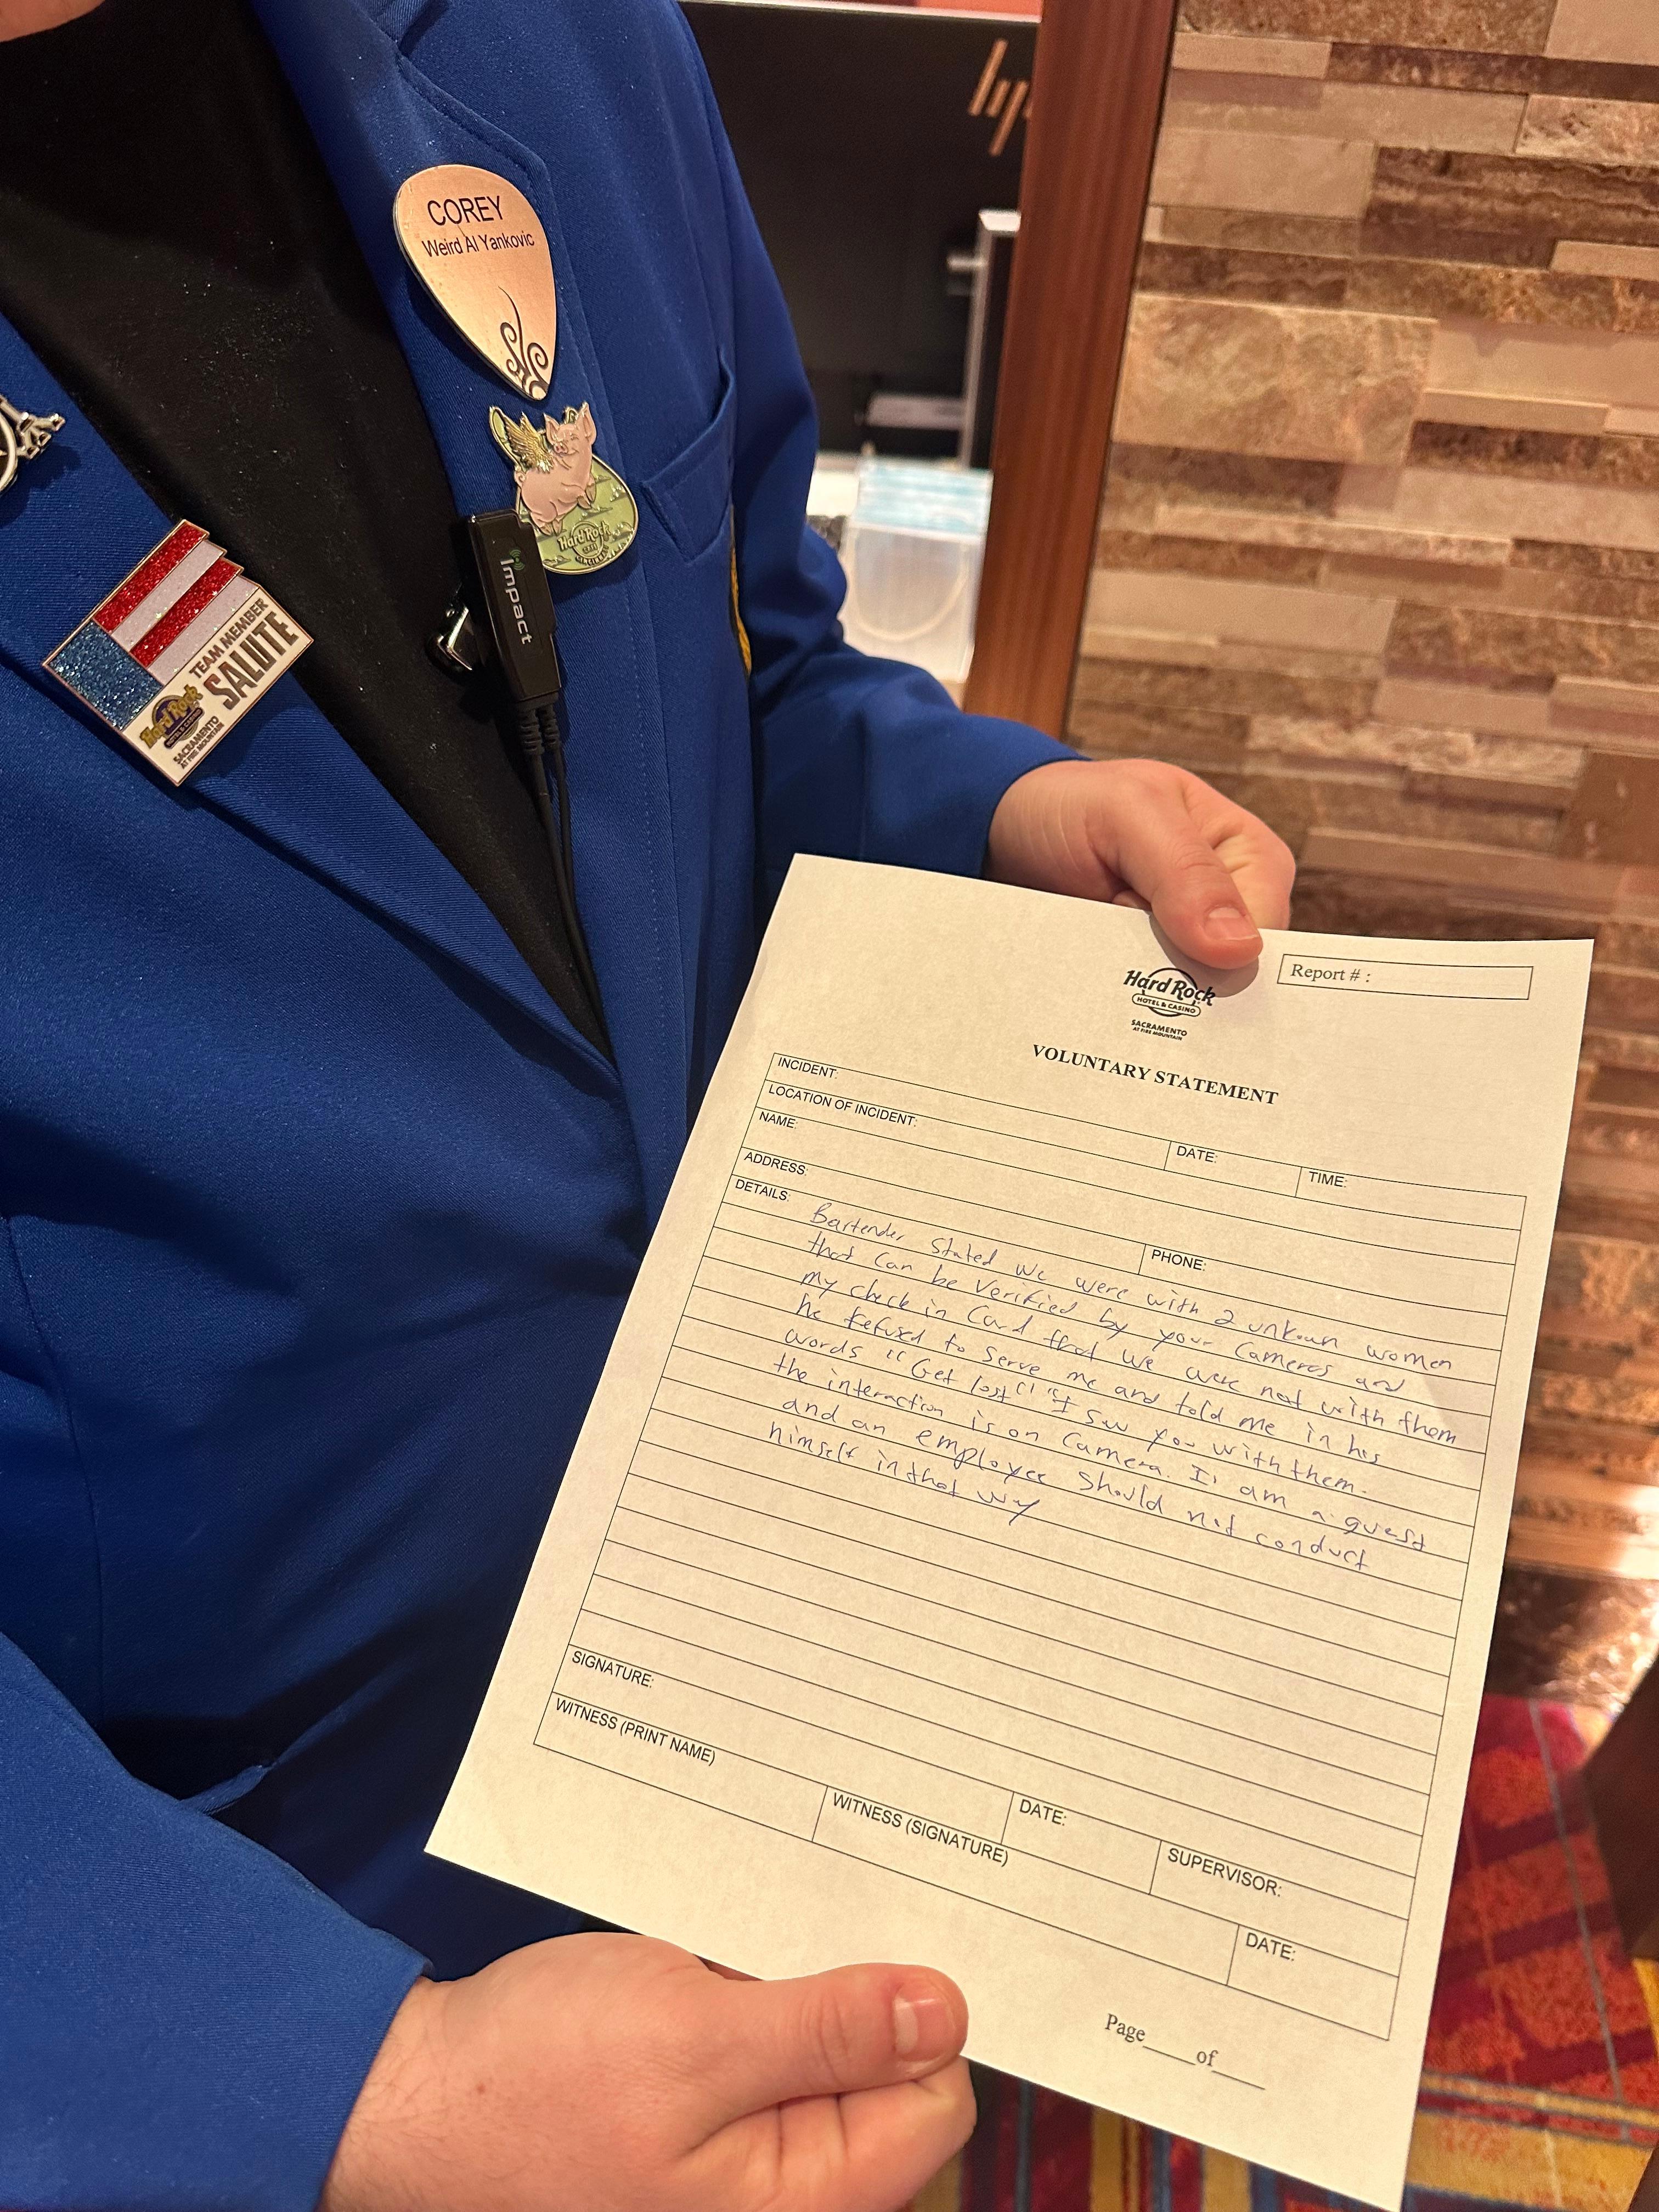 hp
COREY
Weird Al Yankovic
Hard Rock
CAFE
impact
TEAM MEMBER
SALUTE
Hard Rock
HOTEL & CASINO
SACRAMENTO
AT FIRE MOUNTAIN
Report # :
Hard Rock
HOTEL & CASINO
SACRAMENTO
AT FIRE MOUNTAIN
VOLUNTARY STATEMENT
INCIDENT:
LOCATION OF INCIDENT:
DATE:
TIME:
NAME:
ADDRESS:
PHONE:
DETAILS:
Bartender Stated we were with 2 unkown women
that can be verified by your Cameras and
my check in Card that we were not with them
he refused to serve me and told me in his
words "Get lost" "I saw you with them.
the interaction is on Camera. I am a guest
and an employee Should not conduct
himself in that way
SIGNATURE:
DATE:
WITNESS (PRINT NAME)
WITNESS (SIGNATURE)
SUPERVISOR:
DATE:
Page ____ of ____